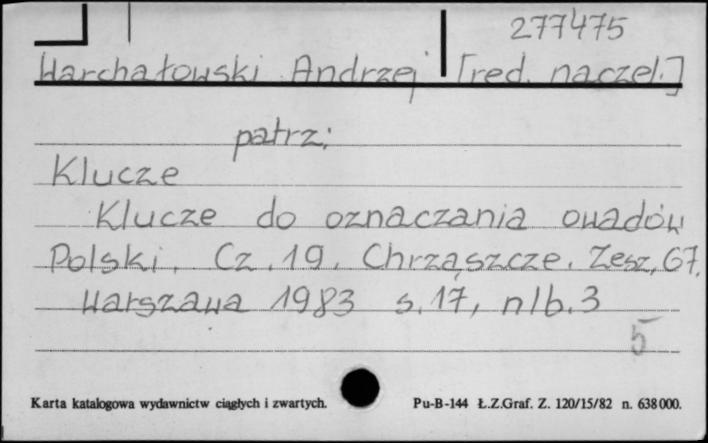 277475
Warchałowski Andrzej [red. naczel.]
patrz:
Klucze
Klucze do oznaczania owadów
Polski. Cz. 19. Chrząszcze. Zesz. 67.
Warszawa 1983 s. 17, nlb. 3
5
Karta katalogowa wydawnictw ciągłych i zwartych. Pu-B-144 Ł.Z.Graf. Z. 120/15/82 n. 638000.